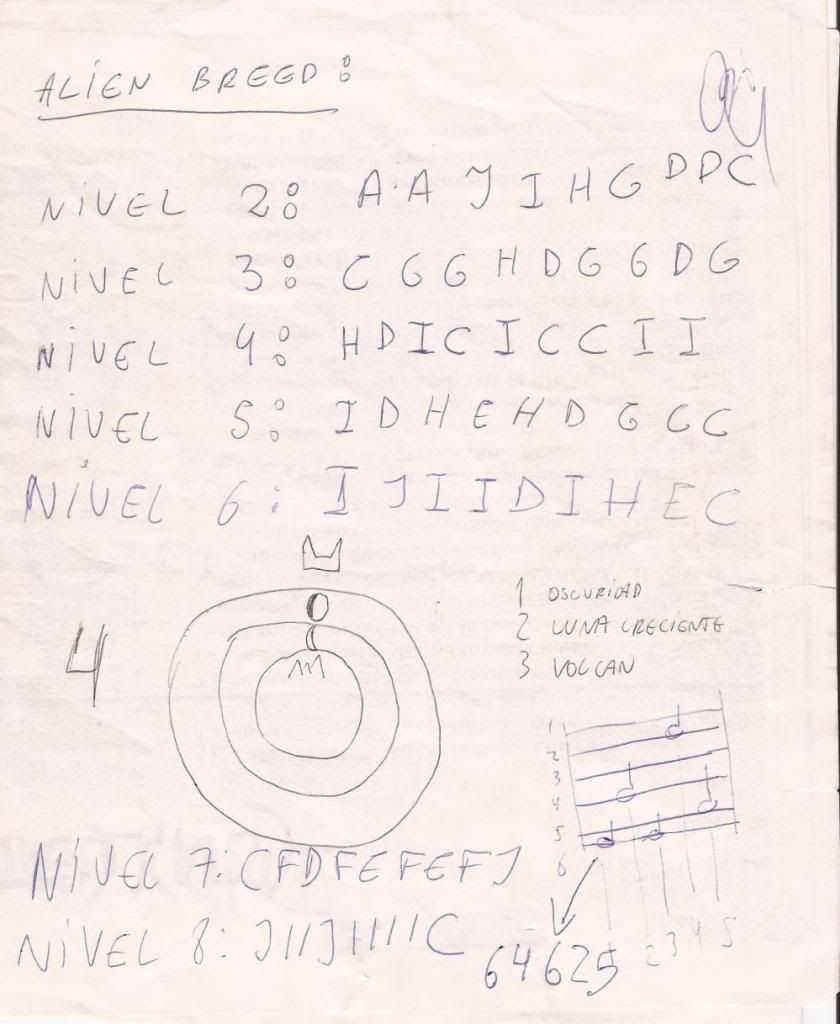 ALIEN BREED:
NIVEL 2: A A J I H G D D C
NIVEL 3: C G G H D G G D G
NIVEL 4: H D I C I C C I I
NIVEL 5: I D H E H D G C C
NIVEL 6: I J I I D I H E C
1 OSCURIDAD
2 LUNA CRECIENTE
3 VOLCAN
4
1
2
3
4
5
6
NIVEL 7: C F D F E F E F J
NIVEL 8: J I I J I I I I C
64625
2 3 4 5